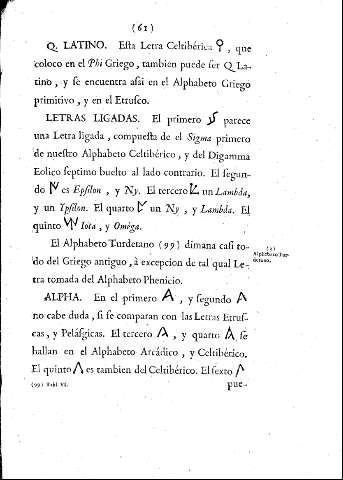 (61)
Q. LATINO. Esta Letra Celtibérica , que
coloco en el Phi Griego, tambien puede ser Q La-
tino, y se encuentra assi en el Alphabeto Griego
primitivo, y en el Etrusco.
LETRAS LIGADAS. El primero parece
una Letra ligada, compuesta de el Sigma primero
de nuestro Alphabeto Celtibérico, y del Digamma
Eolico septimo buelto al lado contrario. El segun-
do es Epsilon, y Ny. El tercero un Lambda,
y un Ypsilon. El quarto un Ny, y Lambda. El
quinto Iota, y Oméga.
El Alphabeto Turdetano (99) dimana casi to-
do del Griego antiguo, à excepcion de tal qual Le-
tra tomada del Alphabeto Phenicio.
Alphabeto Tur-
detano.
ALPHA. En el primero A, y segundo
no cabe duda, si se comparan con las Letras Etrus-
cas, y Pelásgicas. El tercero , y quarto se
hallan en el Alphabeto Arcádico, y Celtibérico.
El quinto Λ es tambien del Celtibérico. El sexto
(99) Tabl. VI.
pue-